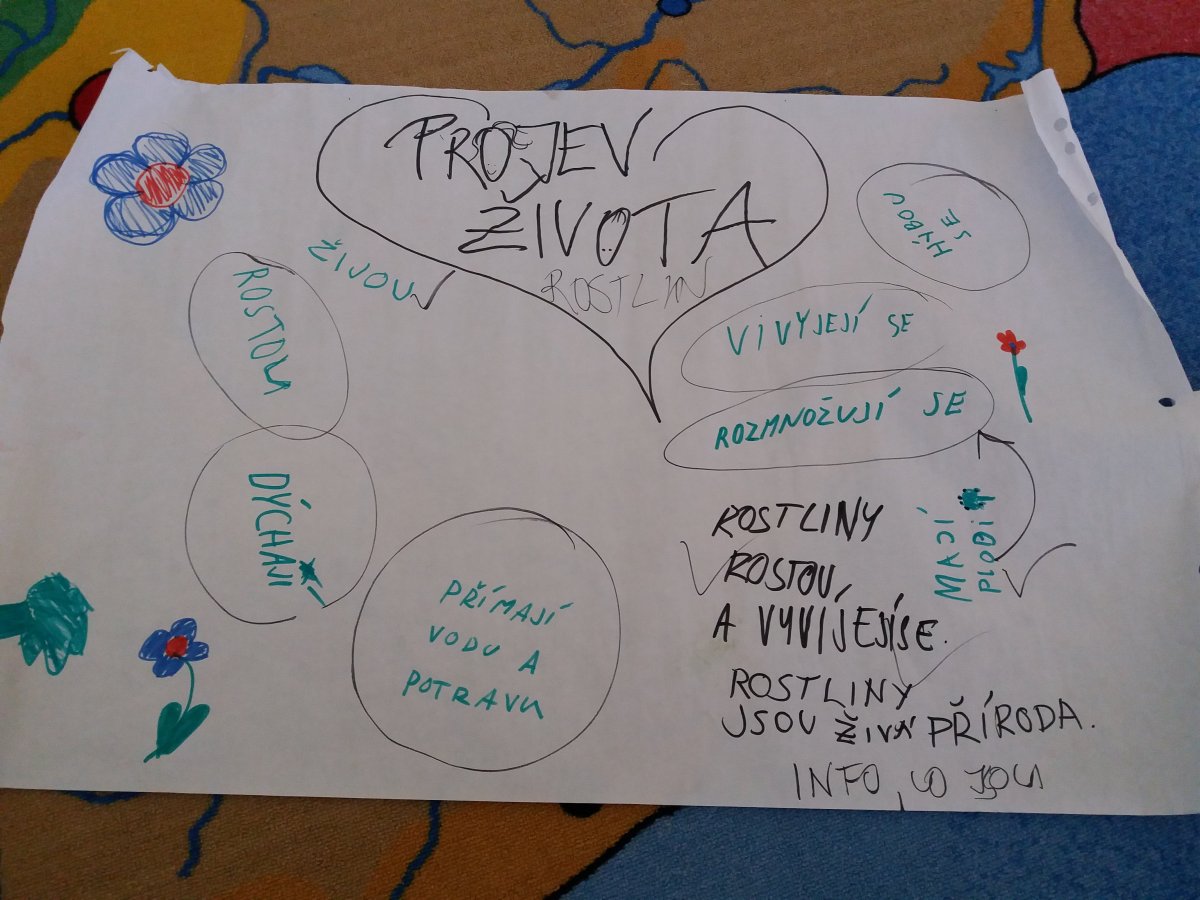 PROJEV
ŽIVOTA
ROSTLIN
ŽIVOU
HÝBOU
SE
ROSTOU
VIVYJEJÍ SE
ROZMNOŽUJÍ SE
DÝCHÁNÍ
PŘÍMAJÍ
VODU A
POTRAVU
MAJÍ
PLODI
ROSTLINY
ROSTOU,
A VYVÍJEJÍSE.
ROSTLINY
JSOU ŽIVÁ PŘÍRODA.
INFO, CO JSOU